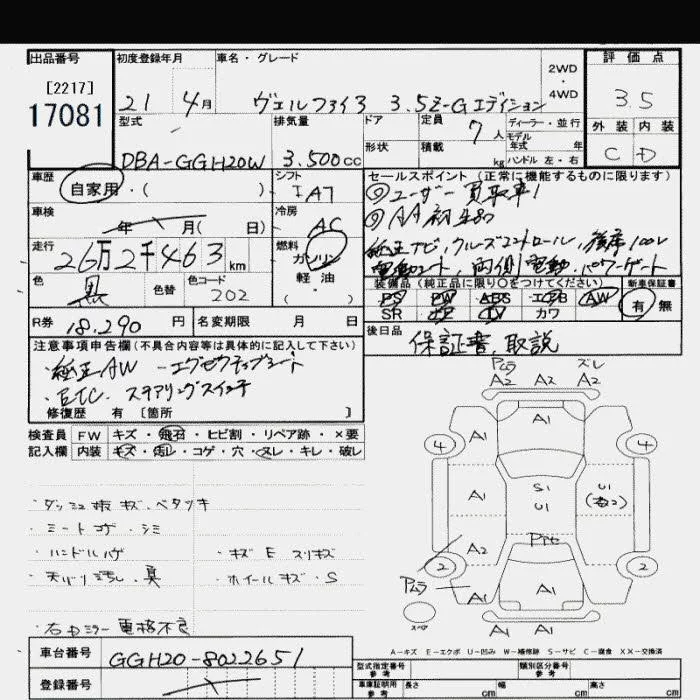 出品番号 初度登録年月 車名・グレード 評価点
[2217]
17081
21 4月 ヴェルファイア 3.5Z-Gエディション
2WD・4WD
3.5
型式 排気量 ドア 定員 7人 ディーラー・並行
モデル年式 年
外装 内装
DBA-GGH20W 3.500cc 形状 積載 kg ハンドル 左・右
C D
車歴 自家用・( ) シフト IAT
セールスポイント(正常に機能するものに限ります)
①ユーザー買取車!
車検 年 月( 日) 冷房 AC
走行 26万2千463km
燃料 ガソリン 軽油・( )
純正ナビ,クルーズコントロール,
電動シート,両側電動,パワーゲート
色 黒 色替 色コード 202
装備品(純正品に限り○をつけてください) 新車保証書
PS PW ABS エアB AW
SR カワ
有 無
R券 18.290円 名変期限 月 日
後日品 保証書、取説
注意事項申告欄(不具合内容等は具体的に記入して下さい)
・純正AW
・ETC. ステアリングスイッチ
修復歴 有 [箇所 ]
検査員記入欄 FW キズ・飛石・ヒビ割・リペア跡・×要
内装 キズ・汚レ・コゲ・穴・ヌレ・キレ・破レ
・ダッシュ板キズ.ベタツキ
・シートコゲ・シミ
・ハンドルハゲ ・キズE スリキズ
・天バリ汚レ・臭 ・ホイールキズ・S
・右Dミラー電格不良
Pムラ ズレ
A2 A2 A2
A1
4 A1 4
A1 S1 U1 U1
A2
2 2
Pムラ A1 A1
スペア
A1 A1
A-キズ E-エクボ U-凹み W-補修跡 S-サビ C-腐食 XX-交換済
車台番号 GGH20-8022651
登録番号
型式指定番号 参考 類別区分番号 参考
車庫証明用 参考 長さ cm 幅 cm 高さ cm